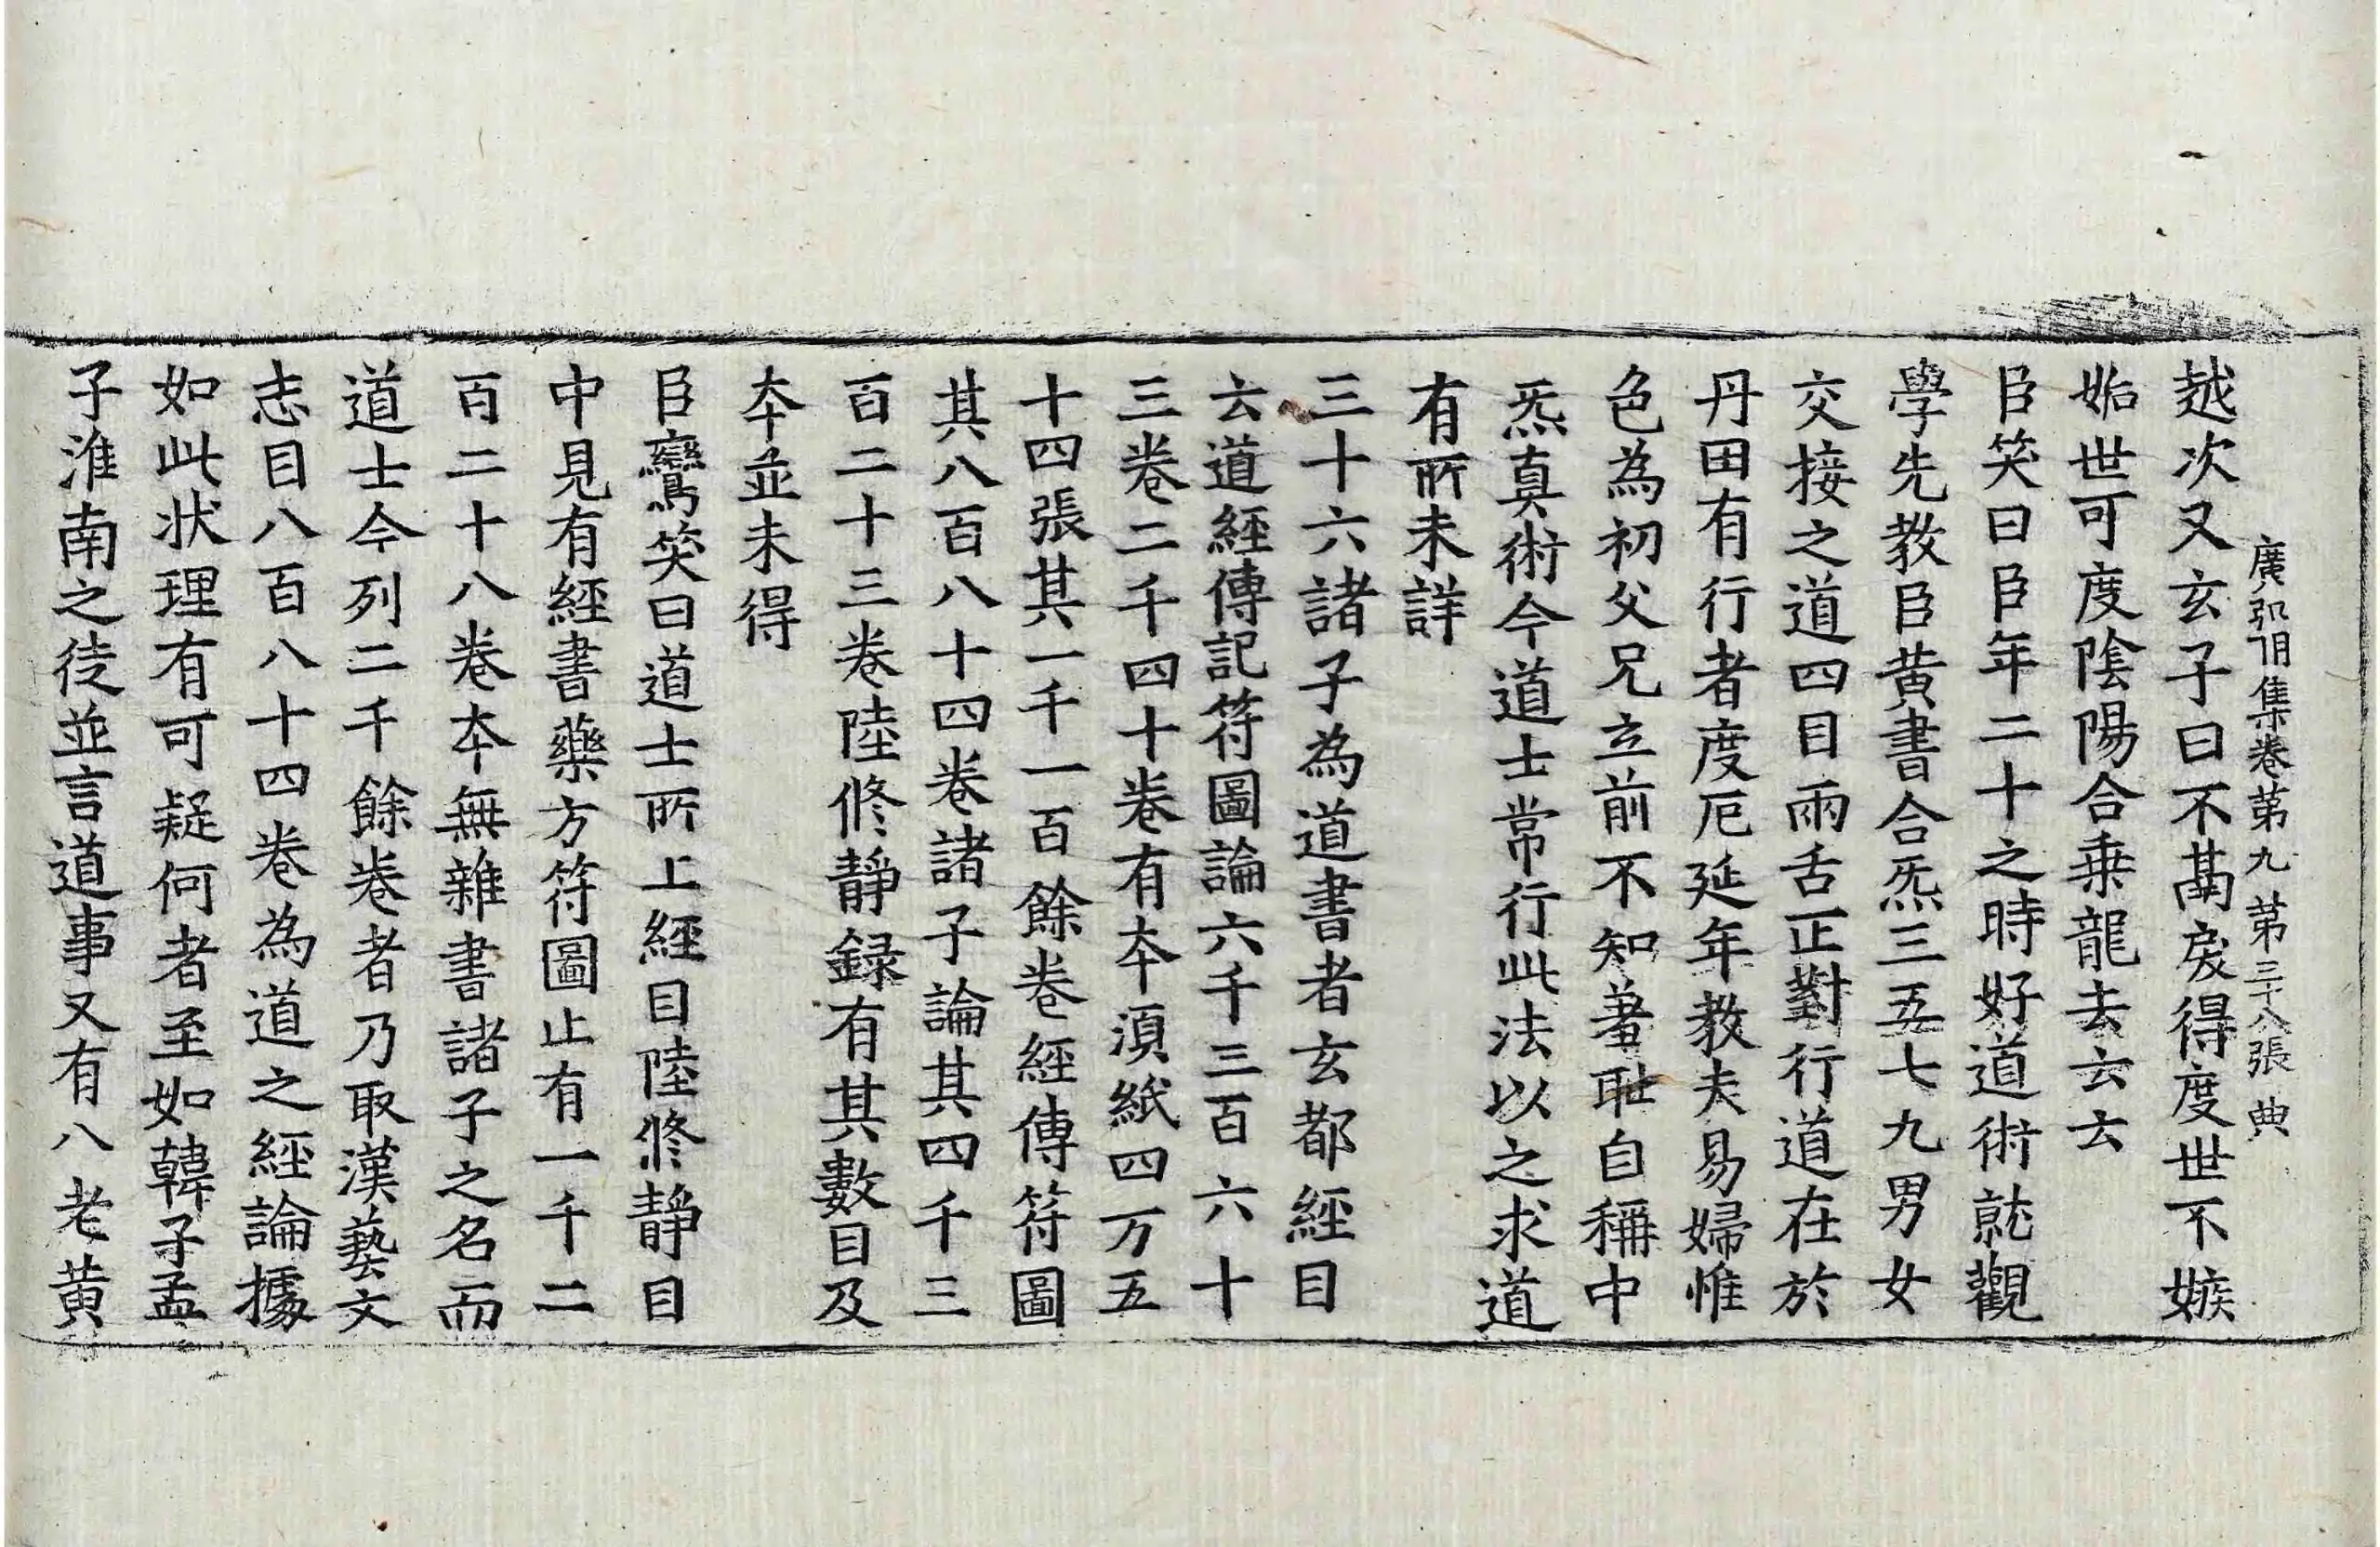 廣弘明集卷第九 第三十八張 典
越次又玄子曰不鬲戾得度世不嫉
妬世可度陰陽合乗龍去云云
臣笑曰臣年二十之時好道術就觀
學先教臣黄書合炁三五七九男女
交接之道四目兩舌正對行道在於
丹田有行者度厄延年教夫易婦惟
色為初父兄立前不知羞恥自稱中
炁真術今道士常行此法以之求道
有所未詳
三十六諸子為道書者玄都經目
云道經傳記符圖論六千三百六十
三卷二千四十卷有本湏紙四万五
十四張其一千一百餘卷經傳符圖
其八百八十四卷諸子論其四千三
百二十三卷陸修靜録有其數目及
本並未得
臣鸞笑曰道士所上經目陸修靜目
中見有經書藥方符圖止有一千二
百二十八卷本無雜書諸子之名而
道士今列二千餘卷者乃取漢藝文
志目八百八十四卷為道之經論據
如此状理有可疑何者至如韓子孟
子淮南之徒並言道事又有八老黄